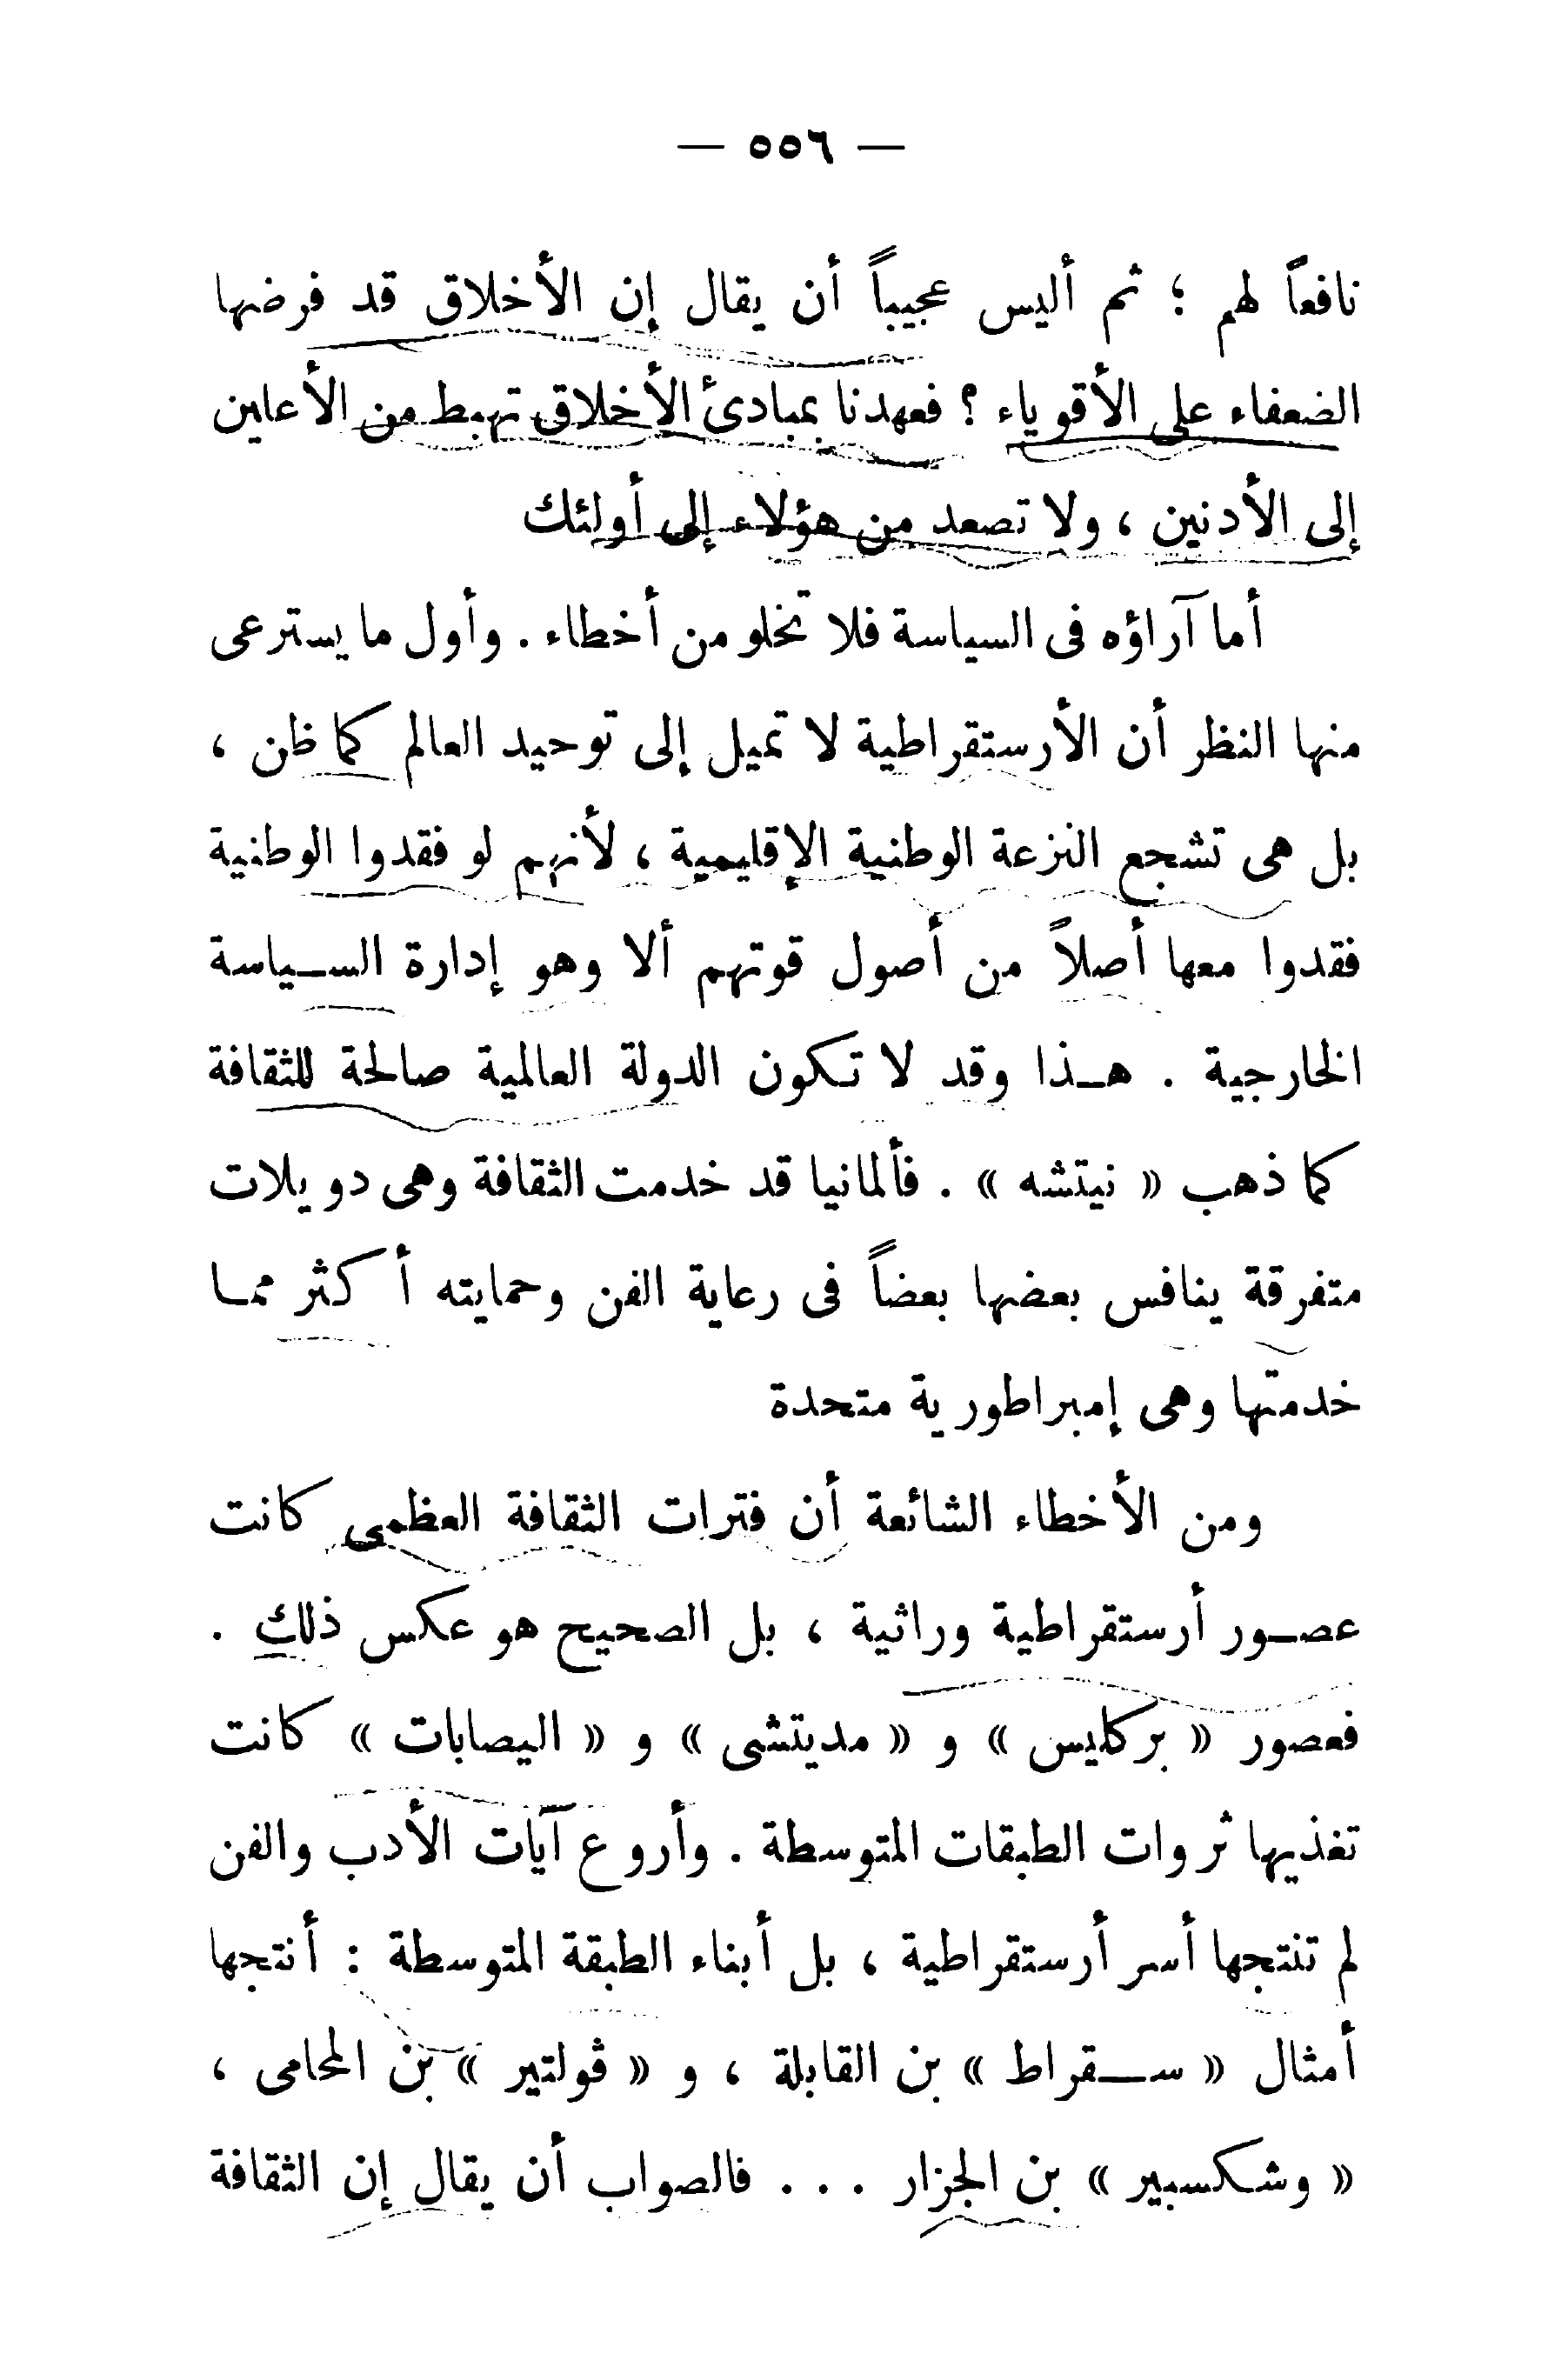 — ٥٥٦ —
نافعاً لهم ؛ ثم أليس عجيباً أن يقال إن الأخلاق قد فرضها
الضعفاء على الأقوياء ؟ فعهدنا بمبادئ الأخلاق تهبط من الأعلين
إلى الأدنين ، ولا تصعد من هؤلاء إلى أولئك
أما آراؤه فى السياسة فلا تخلو من أخطاء . وأول ما يسترعى
منها النظر أن الأرستقراطية لا تميل إلى توحيد العالم كما ظن ،
بل هى تشجع النزعة الوطنية الإقليمية ، لأنهم لو فقدوا الوطنية
فقدوا معها أصلاً من أصول قوتهم ألا وهو إدارة السـياسة
الخارجية . هـذا وقد لا تكون الدولة العالمية صالحة للثقافة
كما ذهب « نيتشه » . فألمانيا قد خدمت الثقافة وهى دويلات
متفرقة ينافس بعضها بعضاً فى رعاية الفن وحمايته أكثر ممـا
خدمتها وهى إمبراطورية متحدة
ومن الأخطاء الشائعة أن فترات الثقافة العظمى كانت
عصـور أرستقراطية وراثية ، بل الصحيح هو عكس ذلك .
فعصور « بركليس » و « مديتشى » و « اليصابات » كانت
تغذيها ثروات الطبقات المتوسطة . وأروع آيات الأدب والفن
لم تنتجها أسر أرستقراطية ، بل أبناء الطبقة المتوسطة : أنتجها
أمثال « سـقراط » بن القابلة ، و « ڤولتير » بن المحامى ،
« وشكسبير » بن الجزار . . . فالصواب أن يقال إن الثقافة